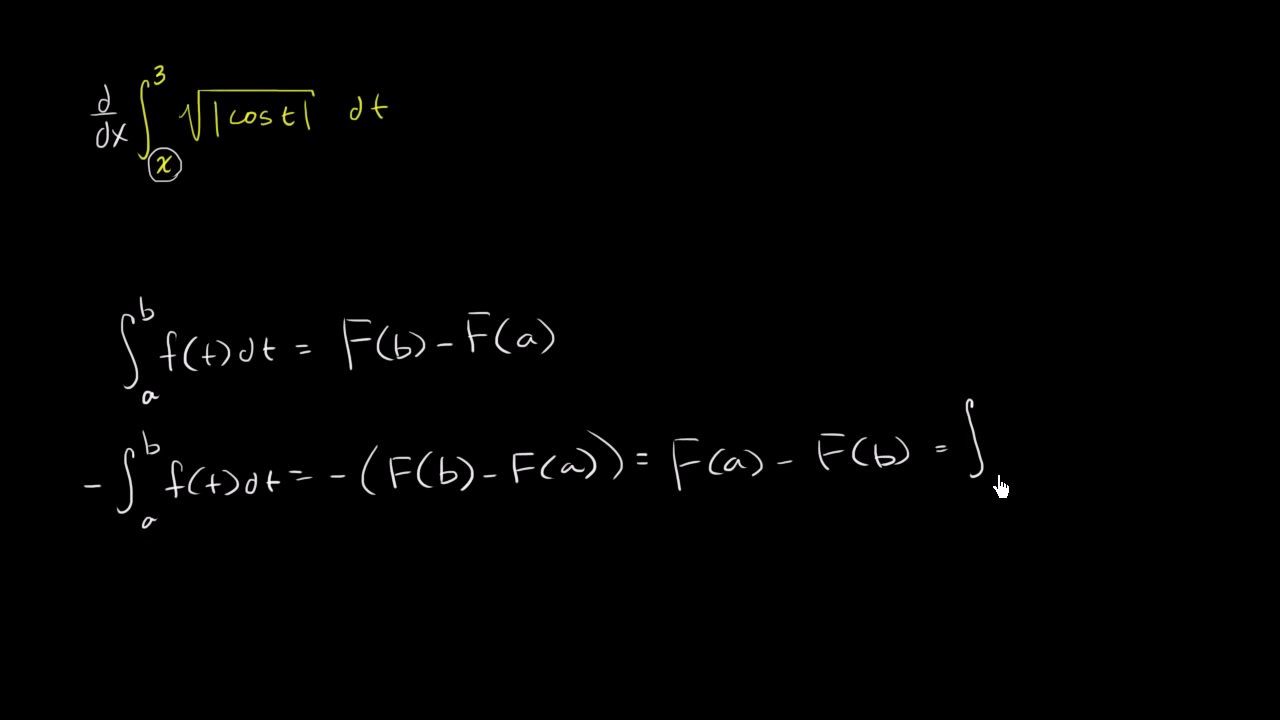 d/dx ∫_x^3 √|cos t| dt
∫_a^b f(t)dt = F(b) - F(a)
- ∫_a^b f(t)dt = -(F(b) - F(a)) = F(a) - F(b) = ∫